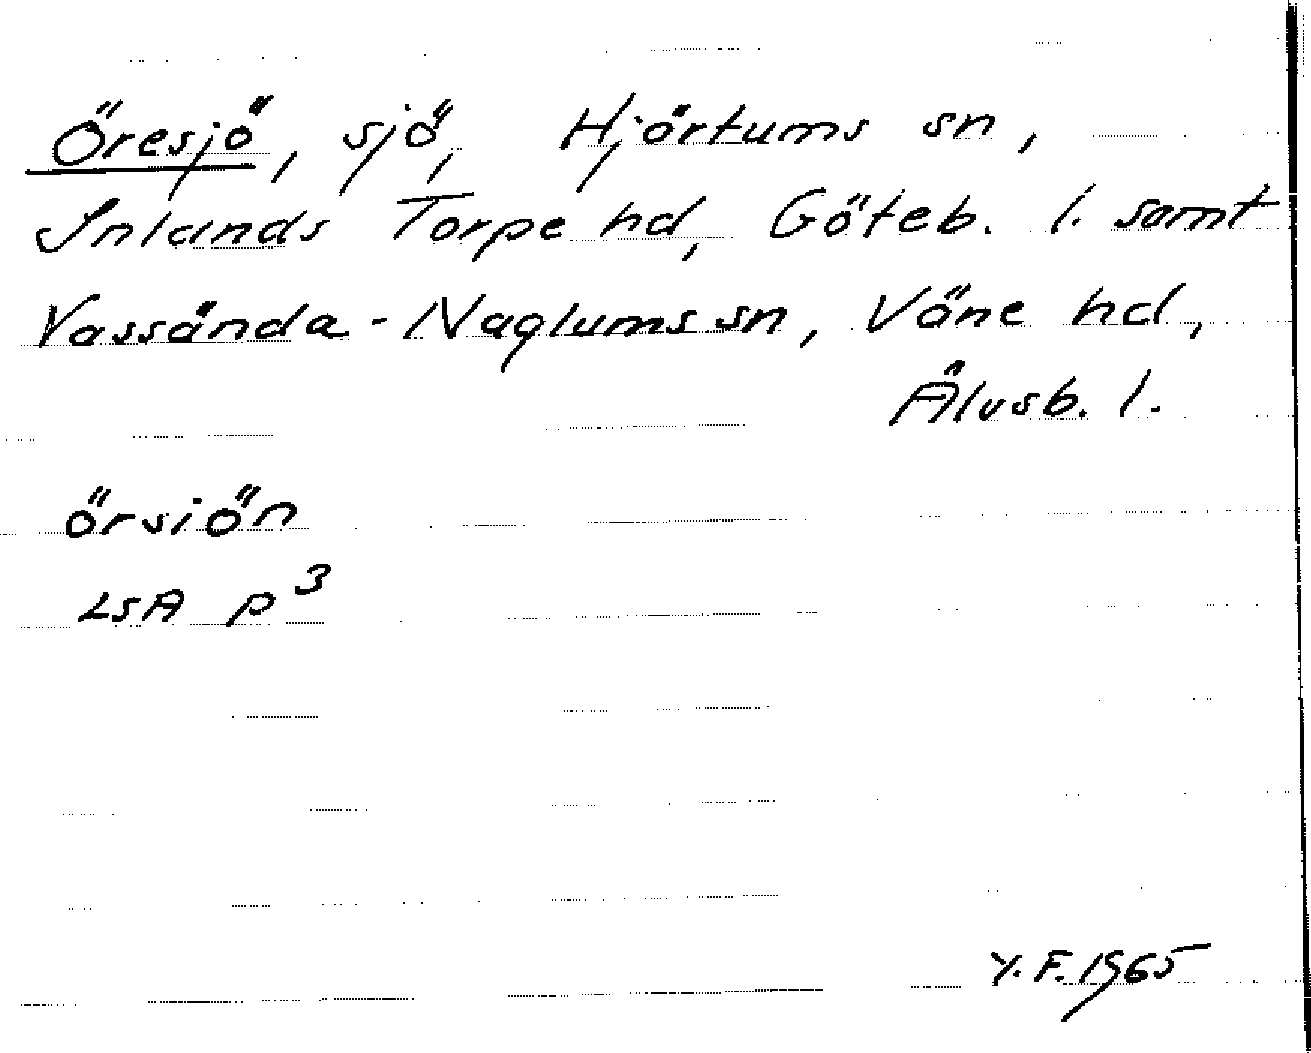 Öresjö, sjö, Hjärtums sn,
Inlands Torpe hd, Göteb. l. samt
Vassända-Naglums sn, Väne hd,
Älvsb. l.
örsiön
LSA P3
Y.F. 1965